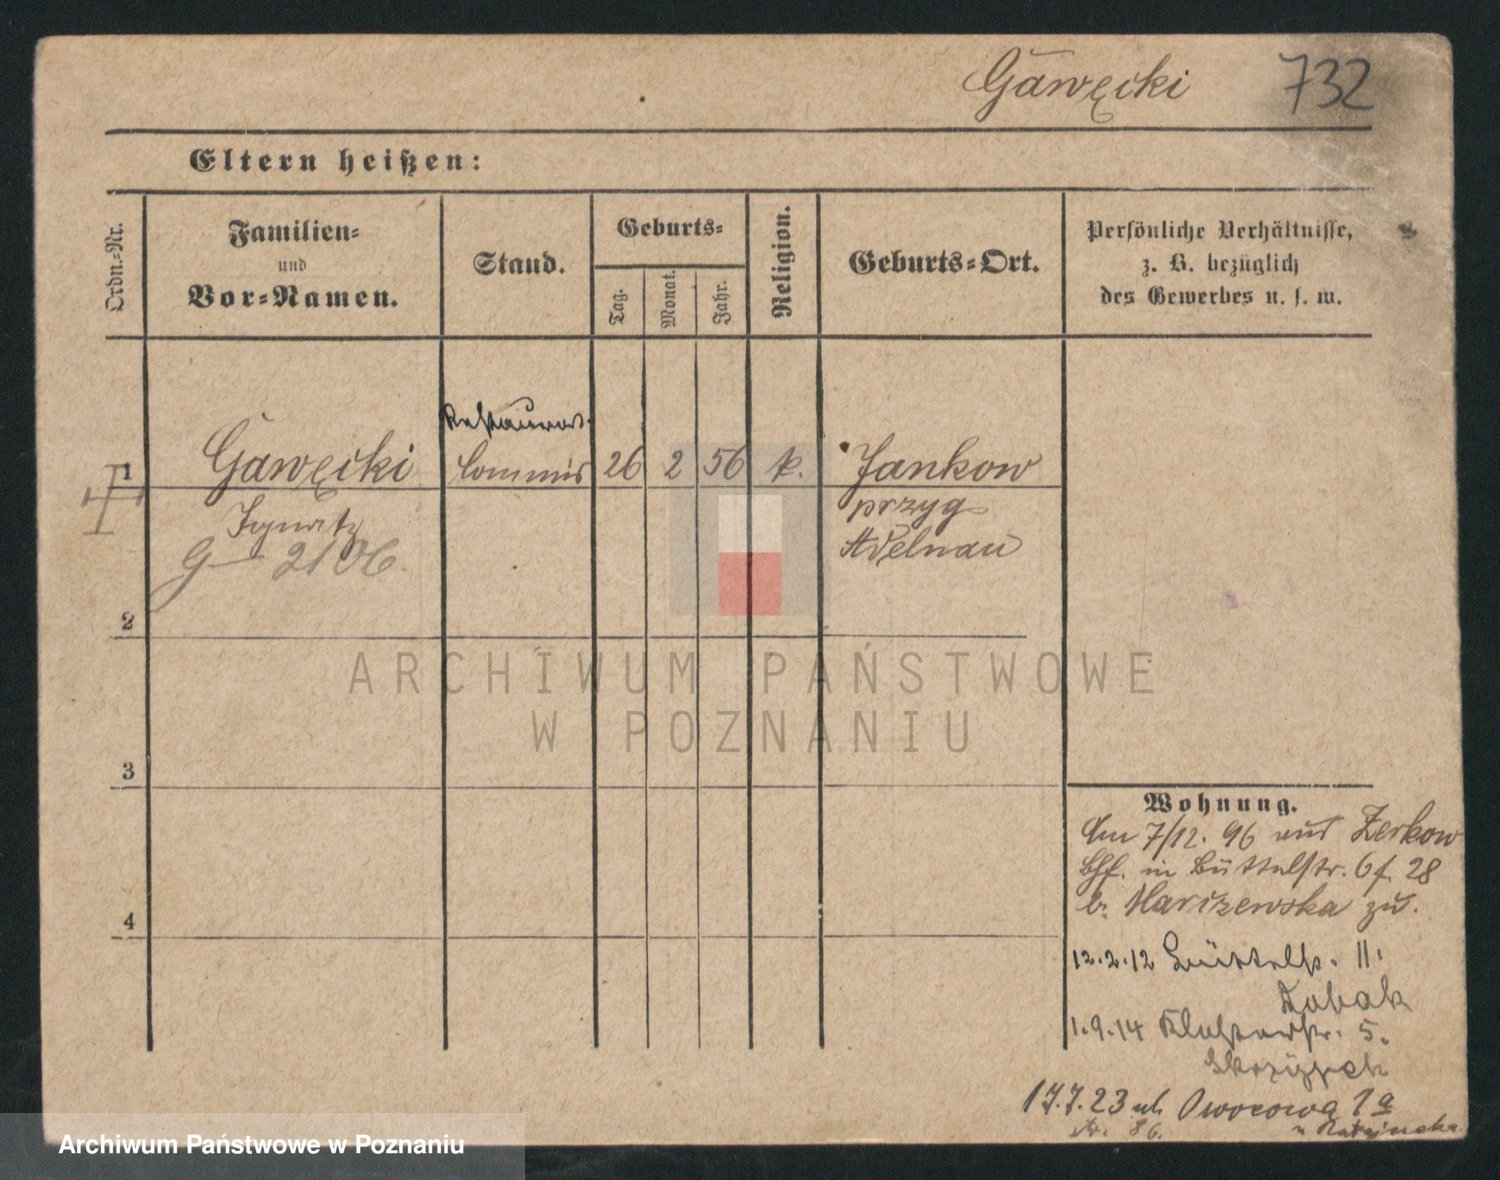 Gawęcki 732
Eltern heißen:
Ordn.-Nr.
Familien-
und
Vor-Namen.
Stand.
Geburts-
Tag.
Monat.
Jahr.
Religion.
Geburts-Ort.
Persönliche Verhältnisse,
z. B. bezüglich
des Gewerbes u. s. w.
Restaurat.
1 Gawęcki Commis 26 2 56 k. Jankow
Ignatz przyg
Adelnau
G 2106.
2
3
4
Wohnung.
Am 7/12. 96 aus Zerkow
in Büttelstr. 6 f. 28
b. zu.
12.2.12 Büttelstr. 11.
1.9.14 Klosterstr. 5.
17.7.23 ul. Owocowa 1a
ARCHIWUM PAŃSTWOWE
W POZNANIU
Archiwum Państwowe w Poznaniu